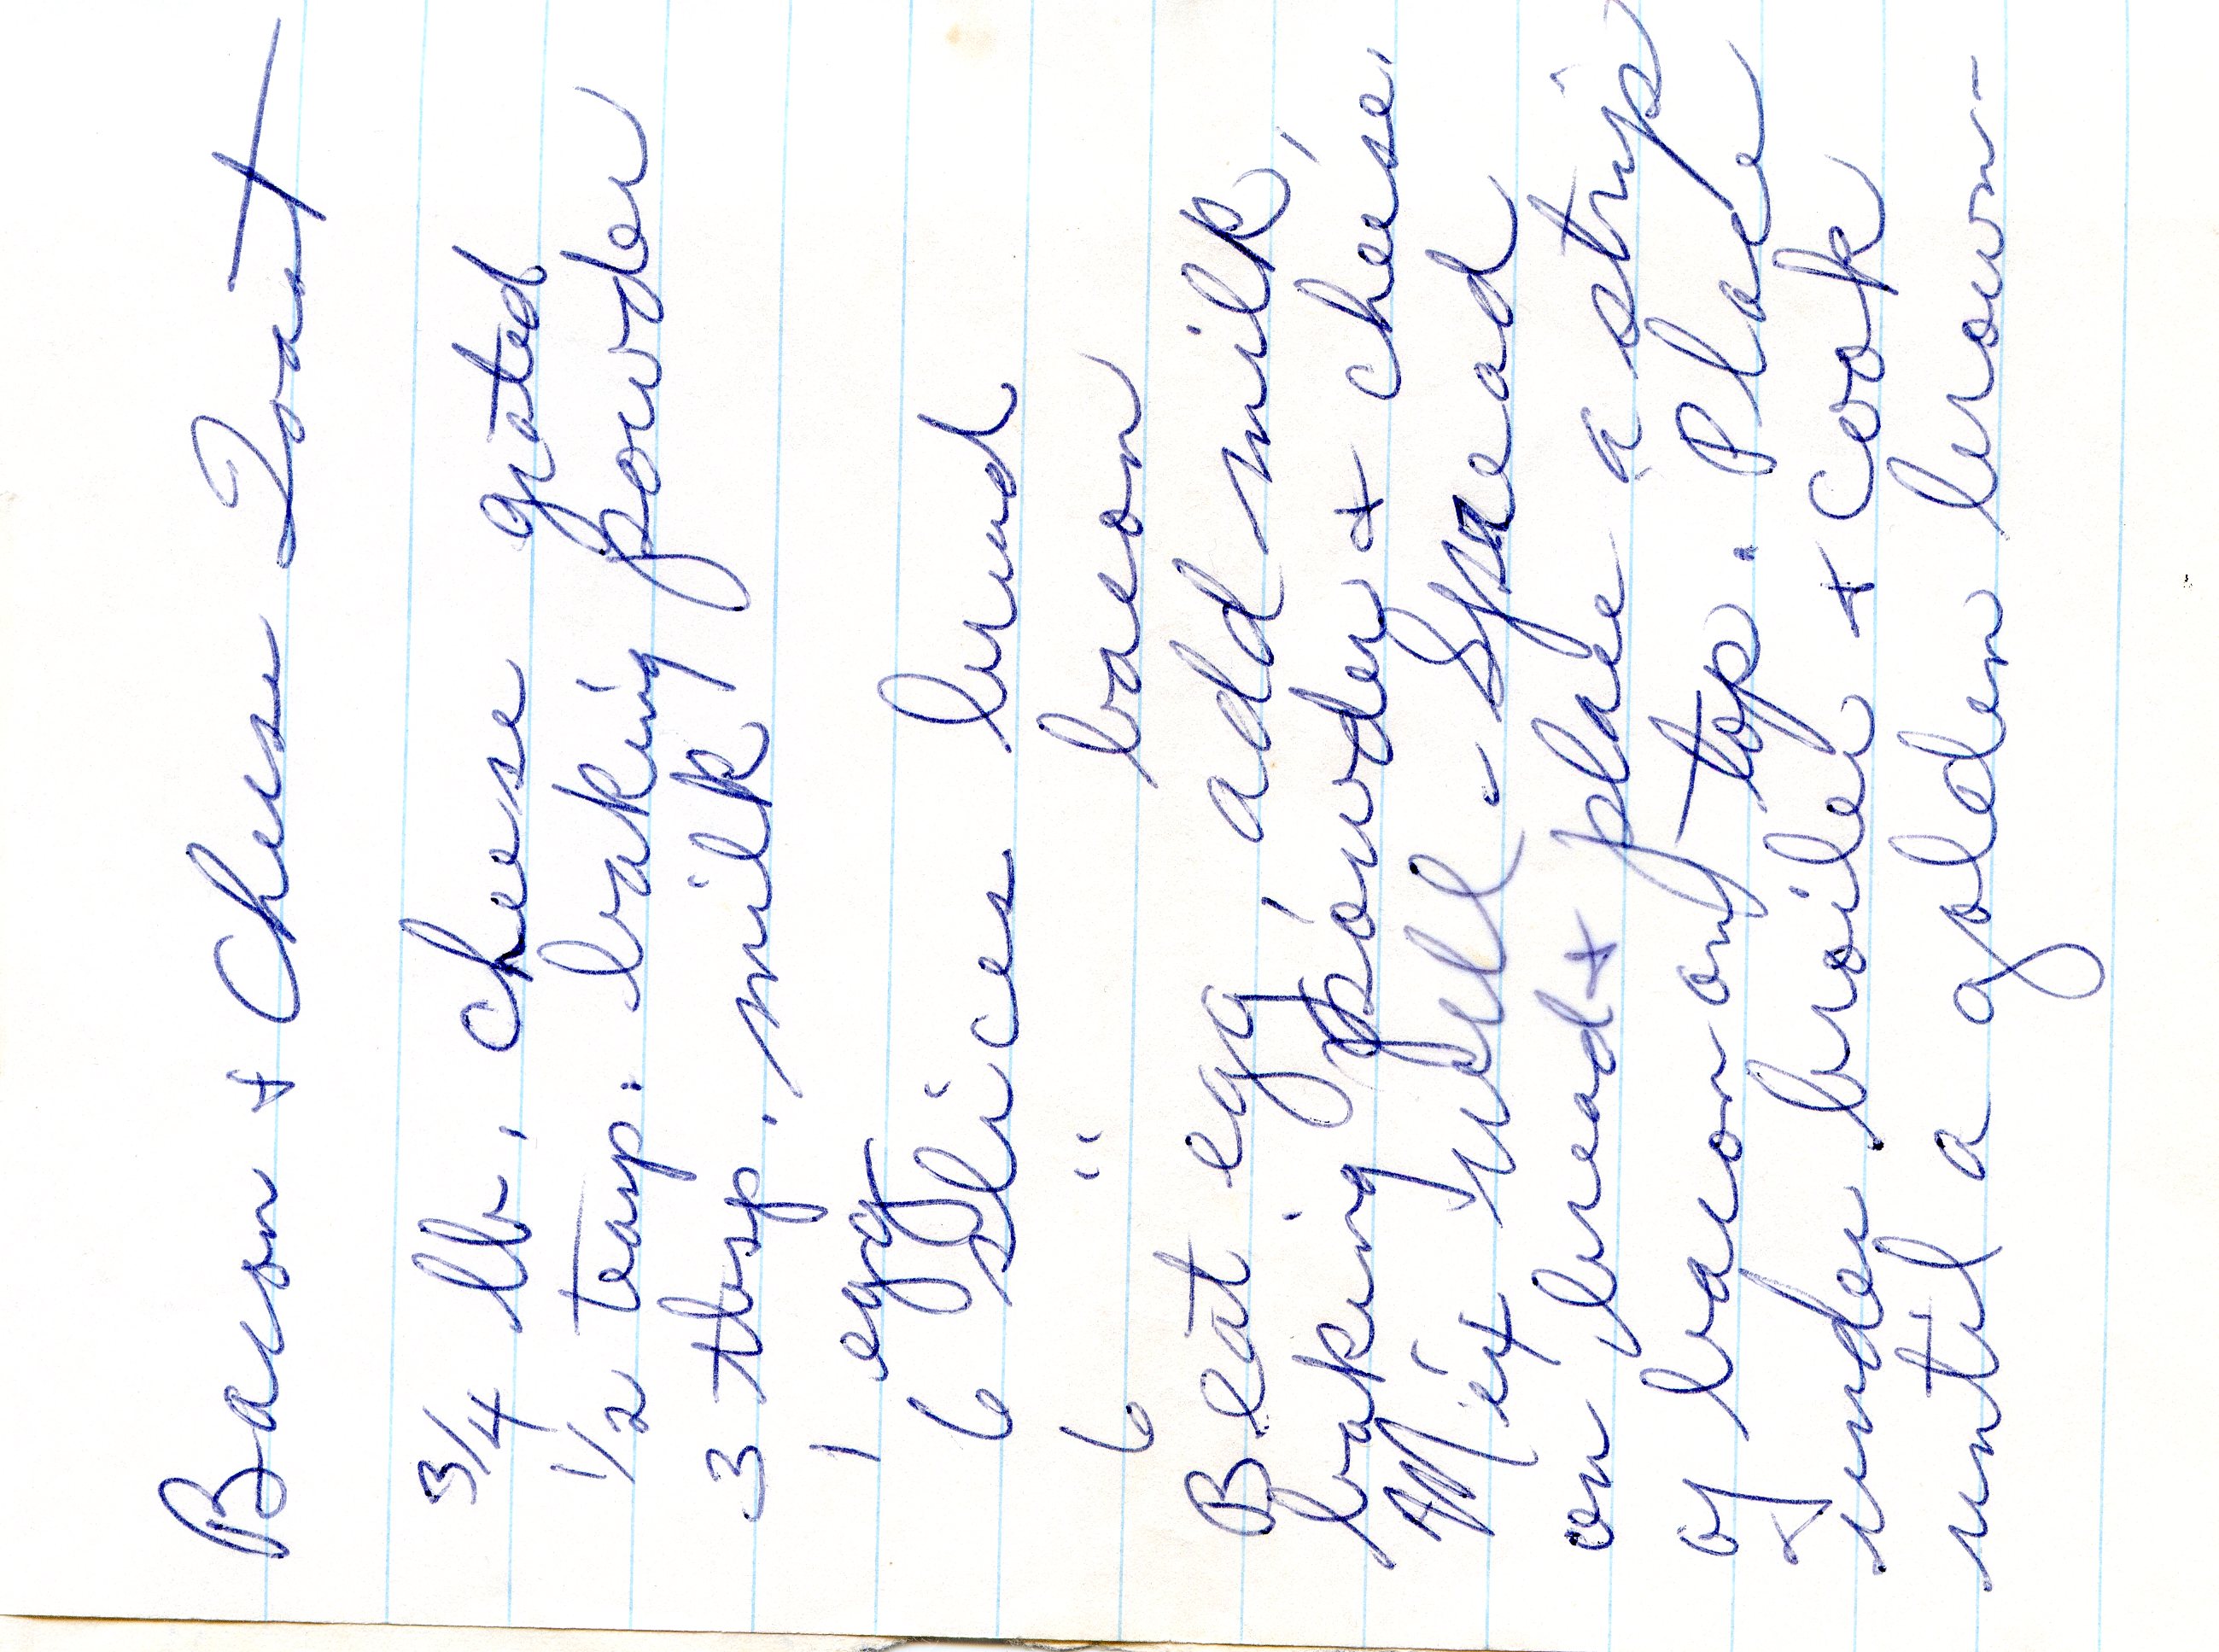 Bacon + Cheese Toast
3/4 lb. cheese grated
1/2 teasp. baking powder
3 tbsp. milk
1 egg
6 slices bread
6 " bacon
Beat egg, add milk,
baking powder + cheese.
Mix well - Spread
on bread + place a strip
of bacon on top. Place
under broiler + cook
until a golden brown -